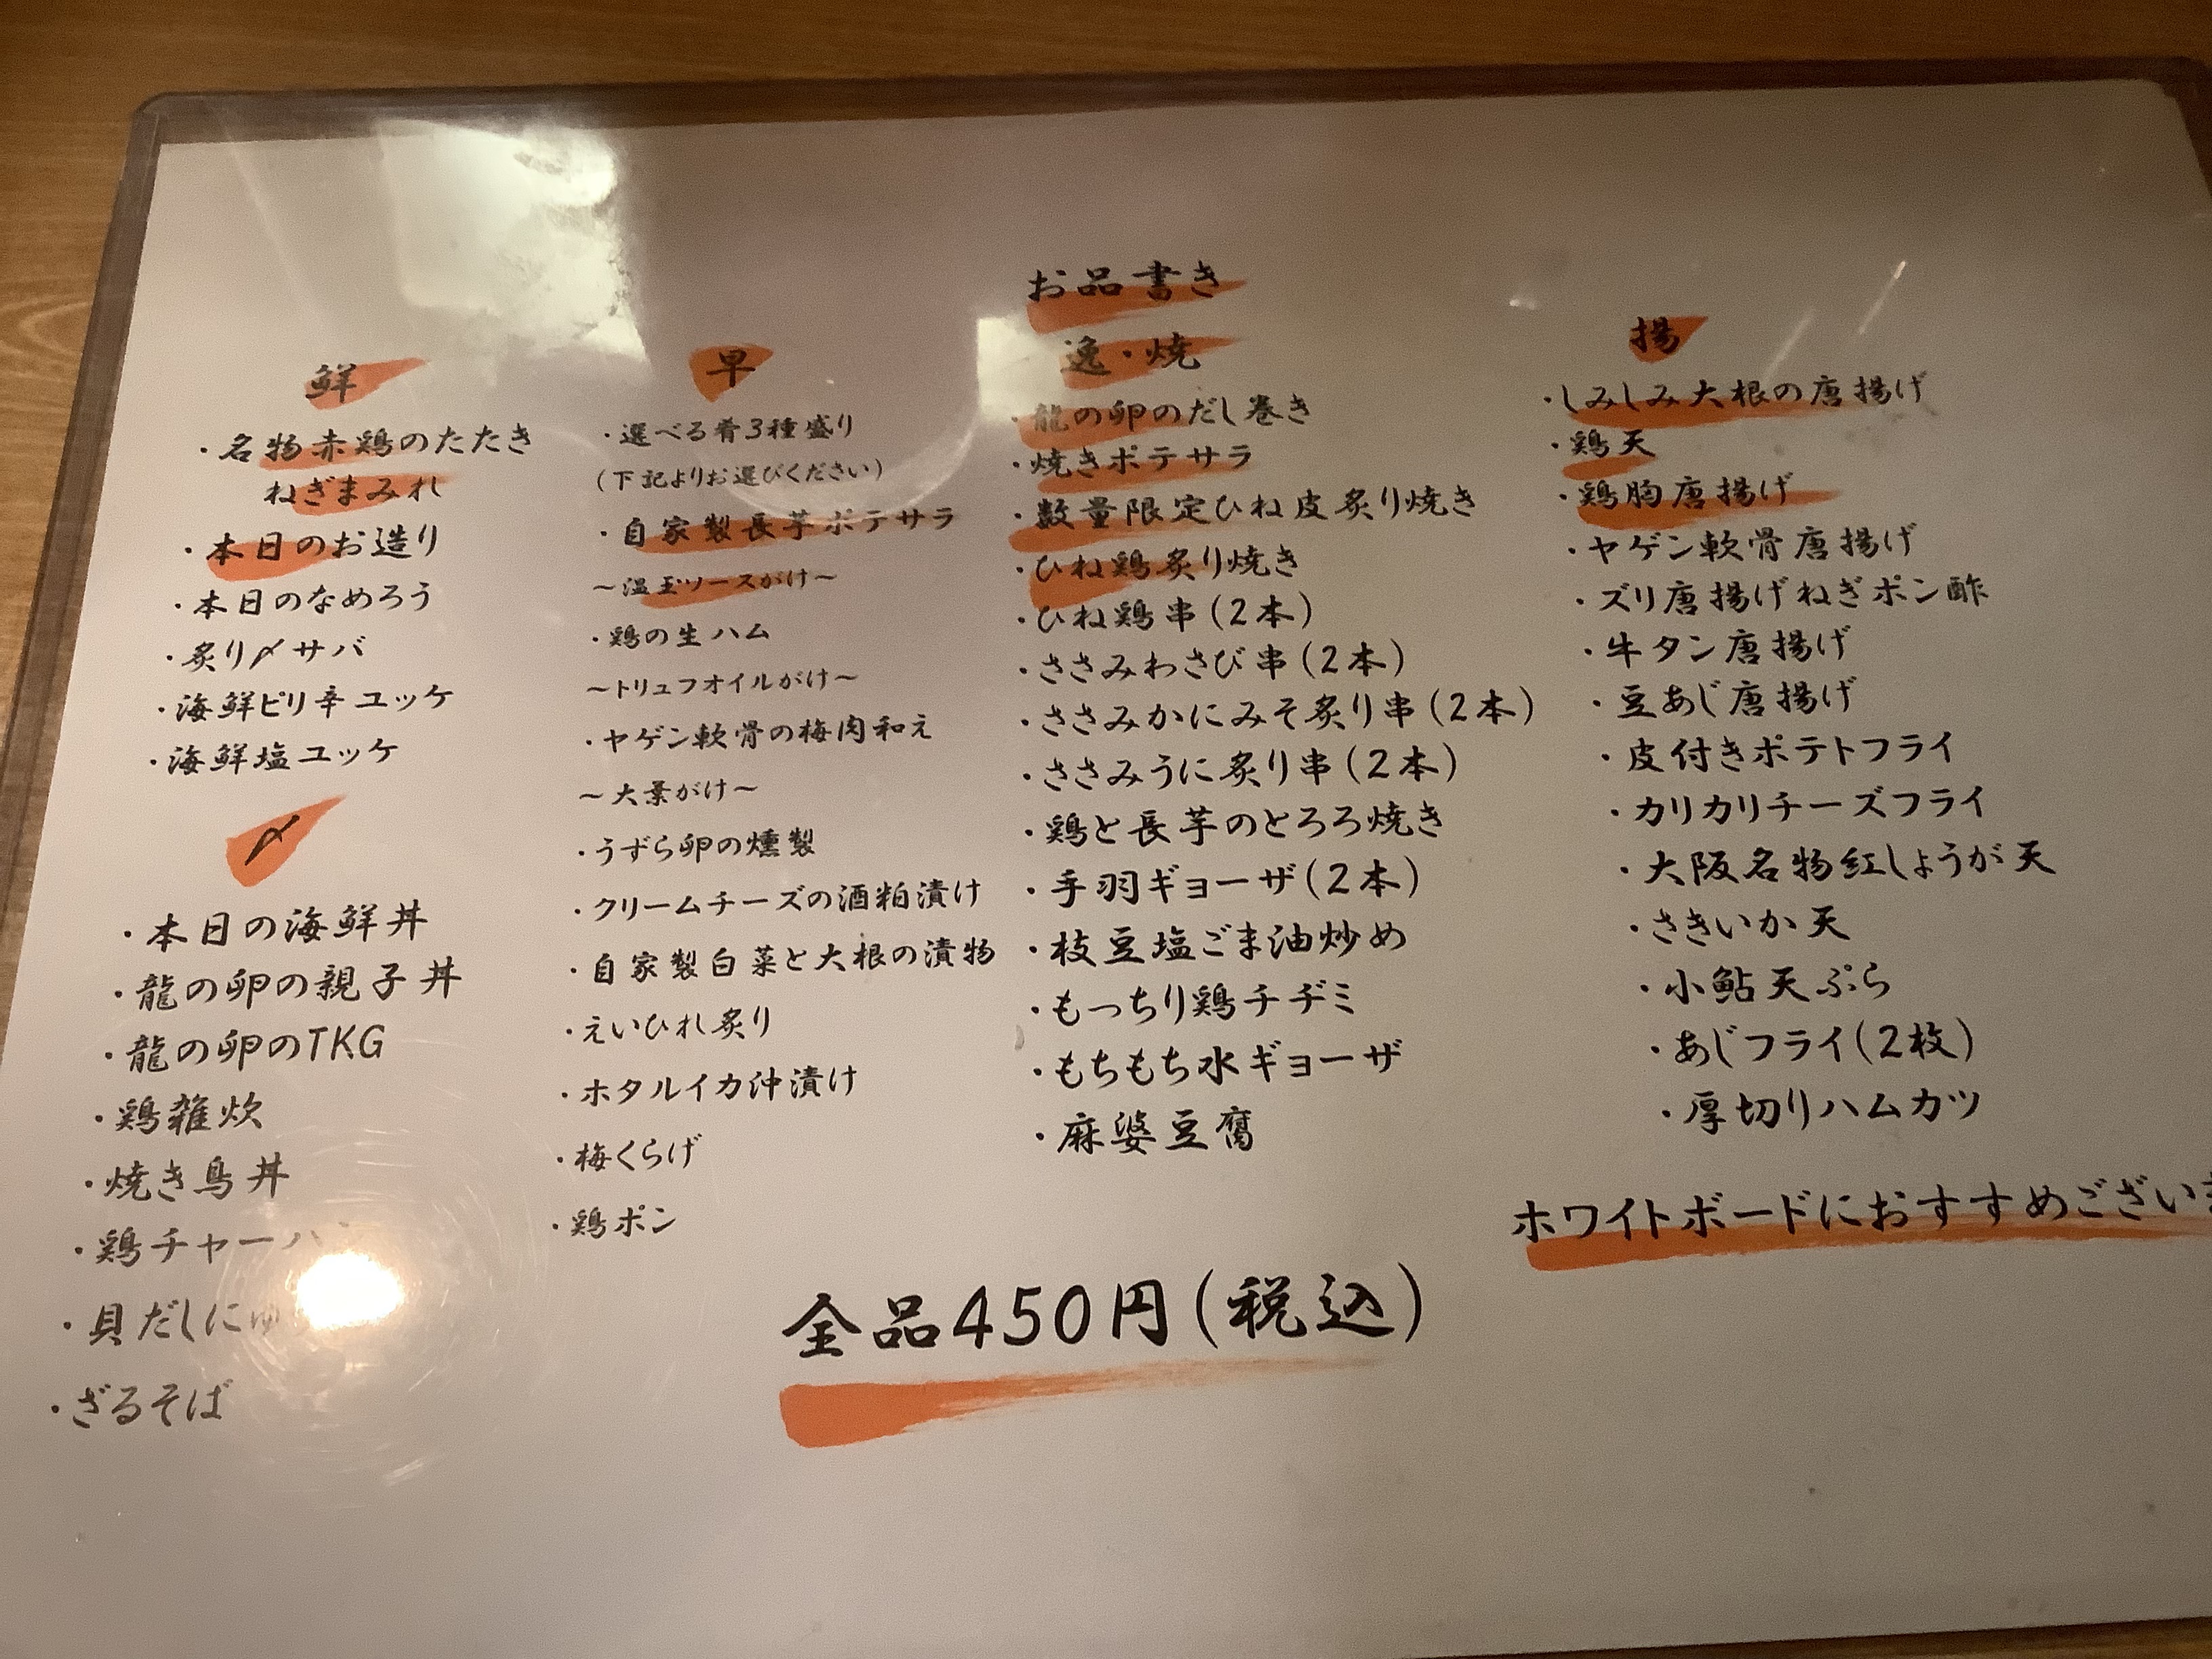 お品書き
鮮
・名物赤鶏のたたき
ねぎまみれ
・本日のお造り
・本日のなめろう
・炙り〆サバ
・海鮮ピリ辛ユッケ
・海鮮塩ユッケ
〆
・本日の海鮮丼
・龍の卵の親子丼
・龍の卵のTKG
・鶏雑炊
・焼き鳥丼
・鶏チャーハ
・貝だしにゅ
・ざるそば
早
・選べる肴3種盛り
(下記よりお選びください)
・自家製長芋ポテサラ
～温玉ソースがけ～
・鶏の生ハム
～トリュフオイルがけ～
・ヤゲン軟骨の梅肉和え
～大葉がけ～
・うずら卵の燻製
・クリームチーズの酒粕漬け
・自家製白菜と大根の漬物
・えいひれ炙り
・ホタルイカ沖漬け
・梅くらげ
・鶏ポン
逸・焼
・龍の卵のだし巻き
・焼きポテサラ
・数量限定ひね皮炙り焼き
・ひね鶏炙り焼き
・ひね鶏串(2本)
・ささみわさび串(2本)
・ささみかにみそ炙り串(2本)
・ささみうに炙り串(2本)
・鶏と長芋のとろろ焼き
・手羽ギョーザ(2本)
・枝豆塩ごま油炒め
・もっちり鶏チヂミ
・もちもち水ギョーザ
・麻婆豆腐
揚
・しみしみ大根の唐揚げ
・鶏天
・鶏胸唐揚げ
・ヤゲン軟骨唐揚げ
・ズリ唐揚げねぎポン酢
・牛タン唐揚げ
・豆あじ唐揚げ
・皮付きポテトフライ
・カリカリチーズフライ
・大阪名物紅しょうが天
・さきいか天
・小鮎天ぷら
・あじフライ(2枚)
・厚切りハムカツ
ホワイトボードにおすすめござい
全品450円(税込)